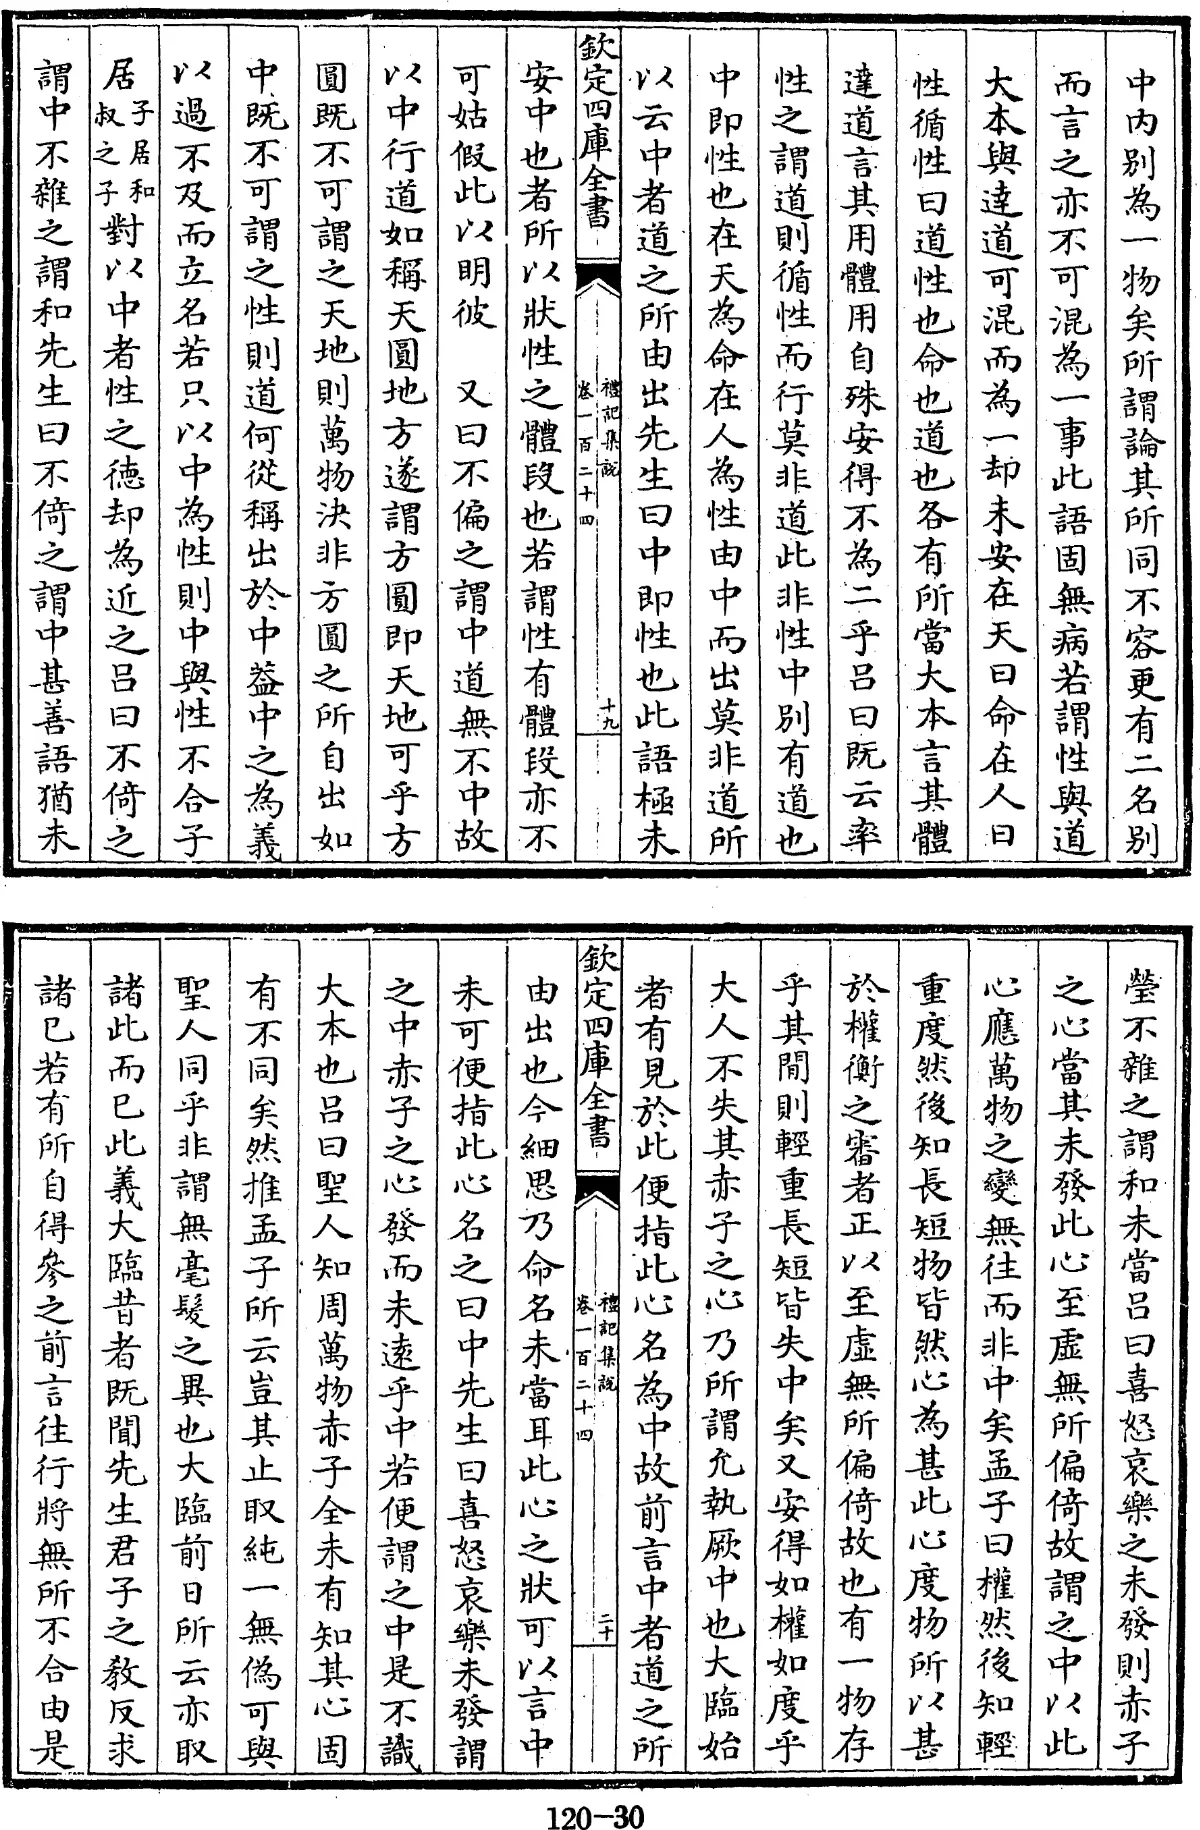 中内别為一物矣所謂論其所同不容更有二名别
而言之亦不可混為一事此語固無病若謂性與道
大本與達道可混而為一却未安在天曰命在人曰
性循性曰道性也命也道也各有所當大本言其體
達道言其用體用自殊安得不為二乎呂曰既云率
性之謂道則循性而行莫非道此非性中别有道也
中即性也在天為命在人為性由中而出莫非道所
以云中者道之所由出先生曰中即性也此語極未
欽定四庫全書
禮記集說
卷一百二十四
十九
安中也者所以狀性之體段也若謂性有體段亦不
可姑假此以明彼 又曰不偏之謂中道無不中故
以中行道如稱天圓地方遂謂方圓即天地可乎方
圓既不可謂之天地則萬物決非方圓之所自出如
中既不可謂之性則道何從稱出於中葢中之為義
以過不及而立名若只以中為性則中與性不合子
居子居和叔之子對以中者性之德却為近之呂曰不倚之
謂中不雜之謂和先生曰不倚之謂中甚善語猶未
瑩不雜之謂和未當呂曰喜怒哀樂之未發則赤子
之心當其未發此心至虛無所偏倚故謂之中以此
心應萬物之變無往而非中矣孟子曰權然後知輕
重度然後知長短物皆然心為甚此心度物所以甚
於權衡之審者正以至虛無所偏倚故也有一物存
乎其間則輕重長短皆失中矣又安得如權如度乎
大人不失其赤子之心乃所謂允執厥中也大臨始
者有見於此便指此心名為中故前言中者道之所
欽定四庫全書
禮記集說
卷一百二十四
二十
由出也今細思乃命名未當耳此心之狀可以言中
未可便指此心名之曰中先生曰喜怒哀樂未發謂
之中赤子之心發而未遠乎中若便謂之中是不識
大本也呂曰聖人知周萬物赤子全未有知其心固
有不同矣然推孟子所云豈其止取純一無偽可與
聖人同乎非謂無毫髮之異也大臨前日所云亦取
諸此而已此義大臨昔者既聞先生君子之教反求
諸已若有所自得參之前言往行將無所不合由是
120-30